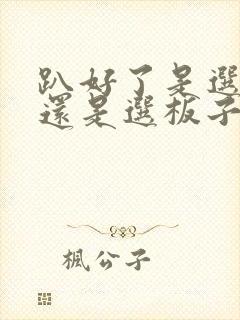 趴好了是選
還是選板子
楓公子